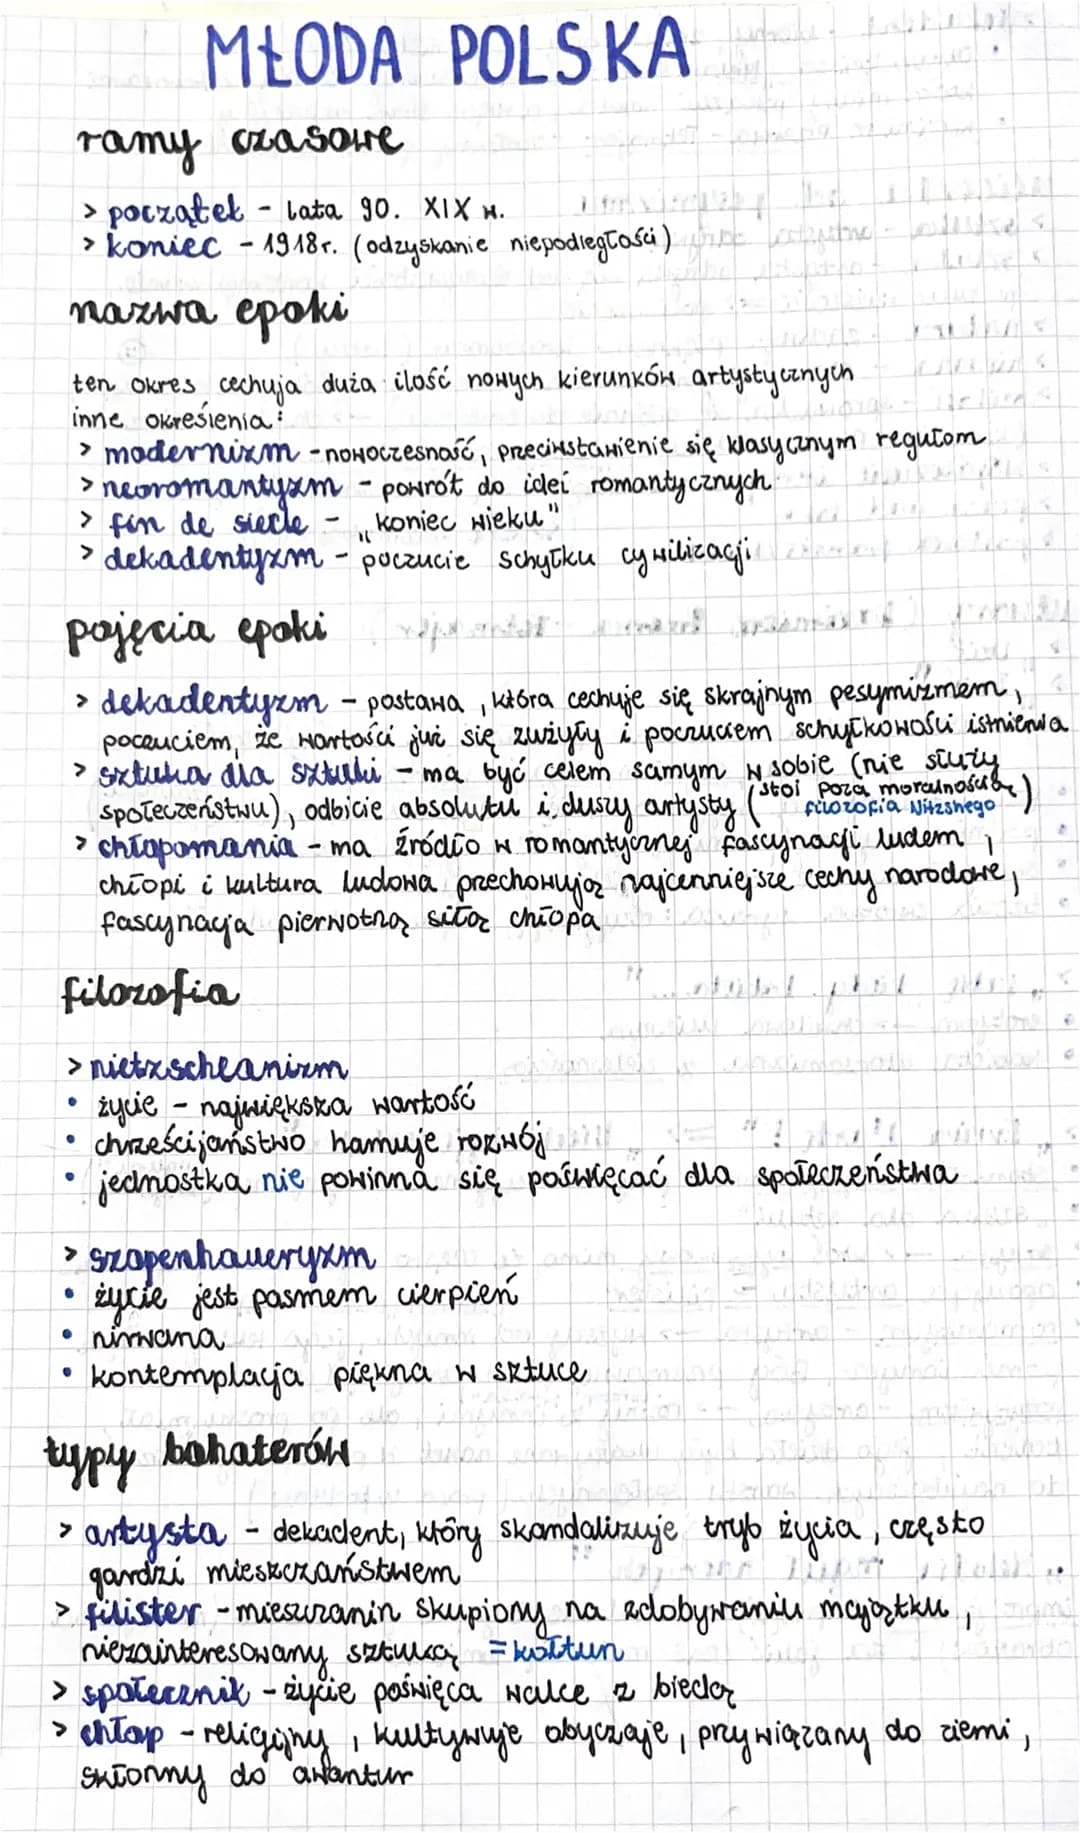 MŁODA POLSKA
ramy czasowe
> początek - lata 90. XIX w.
> koniec - 1918r. (odzyskanie niepodległości)
nazwa epoki
ten okres cechuja duża ilość nowych kierunków artystycznych
inne określenia:
> modernizm - nowoczesność, przeciwstawienie się klasycznym regułom
> neoromantyzm - powrót do idei romantycznych
> fin de siecle - „koniec wieku"
> dekadentyzm - poczucie schyłku cywilizacji
pojęcia epoki
> dekadentyzm - postawa, która cechuje się skrajnym pesymizmem,
poczuciem, że wartości już się zużyły i poczuciem schyłkowości istnienia
> sztuka dla sztuki - ma być celem samym w sobie (nie służy
społeczeństwu), odbicie absolutu i duszy artysty (stoi poza moralnością)
filozofia Nitzshego
> chłopomania - ma źródło w romantycznej fascynacji ludem,
chłopi i kultura ludowa przechowują najcenniejsze cechy narodowe,
fascynacja pierwotną siłą chłopa
filozofia
> nietzscheanizm
• życie - największa wartość
• chrześcijaństwo hamuje rozwój
• jednostka nie powinna się poświęcać dla społeczeństwa
> szopenhaueryzm
• życie jest pasmem cierpień
• nirwana
• kontemplacja piękna w sztuce
typy bohaterów
> artysta - dekadent, który skandalizuje tryb życia, często
gardzi mieszczaństwem
> filister - mieszczanin skupiony na zdobywaniu majątku,
niezainteresowany sztuką = kołtun
> społecznik - życie poświęca walce z biedą
> chłop - religijny, kultywuje obyczaje, przywiązany do ziemi,
skłonny do awantur